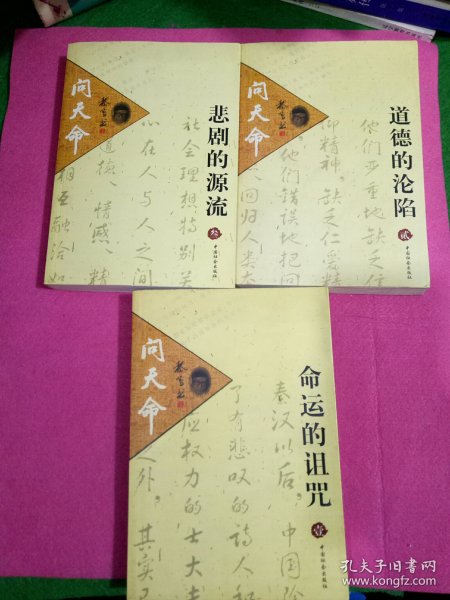 问天命
悲剧的源流
叁
中国社会出版社
社会理想特别关
心在人与人之间
道德、情感、精
相互融洽如
问天命
道德的沦陷
贰
中国社会出版社
他们严重地缺乏信
仰精神。缺乏仁爱精
他们错误地把回
问天命
命运的诅咒
壹
中国社会出版社
秦汉以后，中国
了有悲叹的诗人和
应权力的士大夫
人外，其实又
孔夫子旧书网
www.kongfz.com